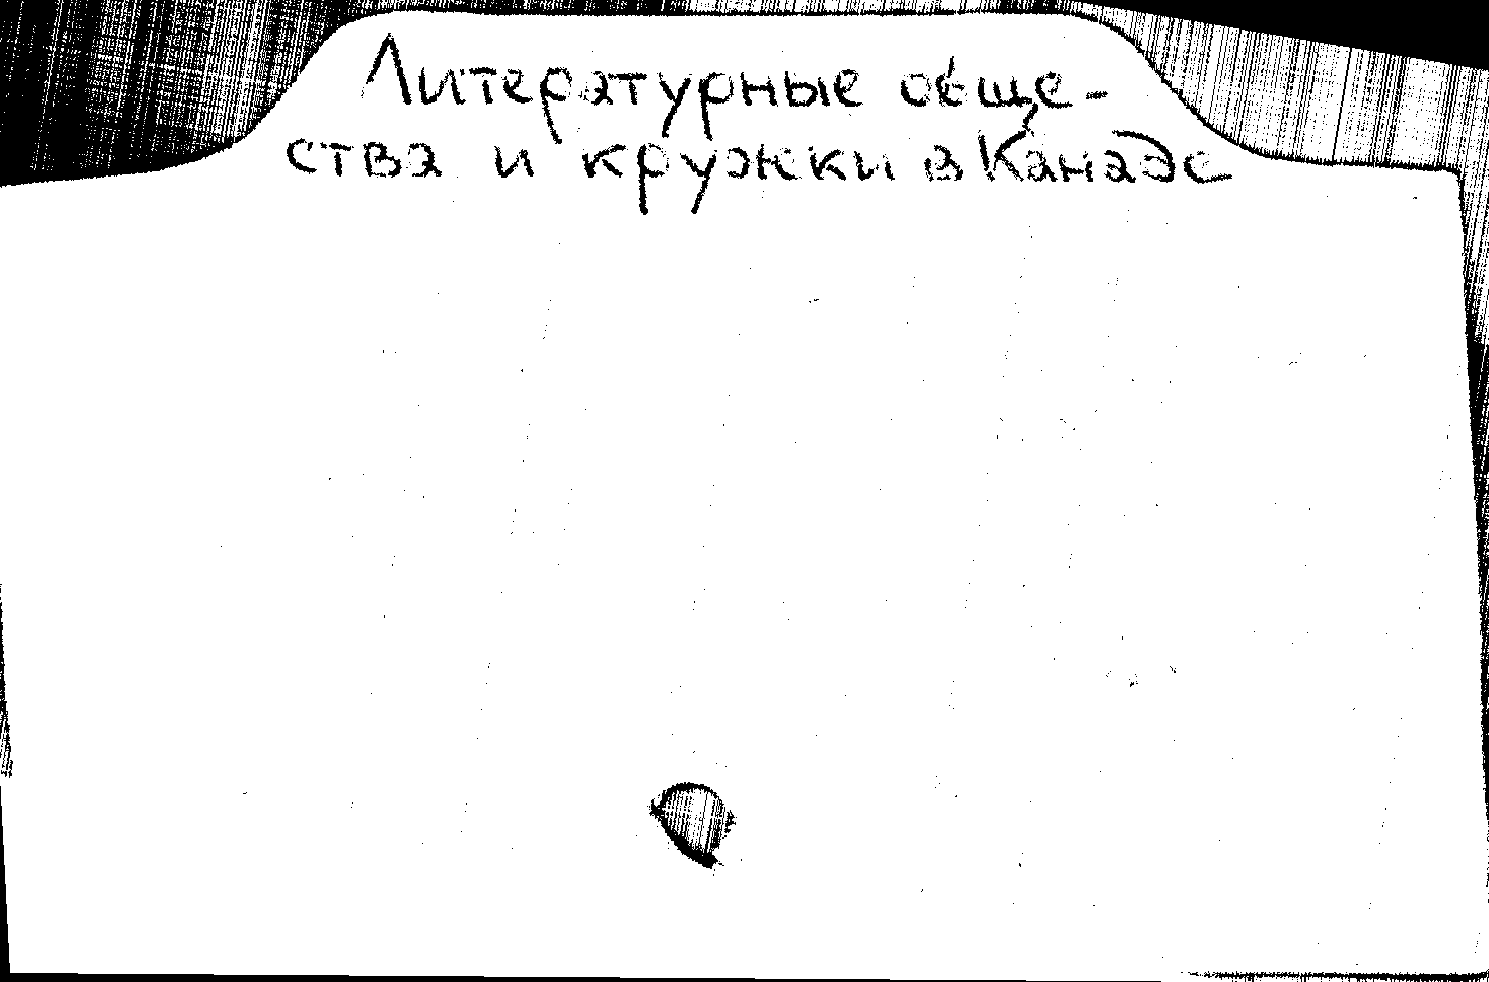 Литературные обще-
ства и кружки в Канаде